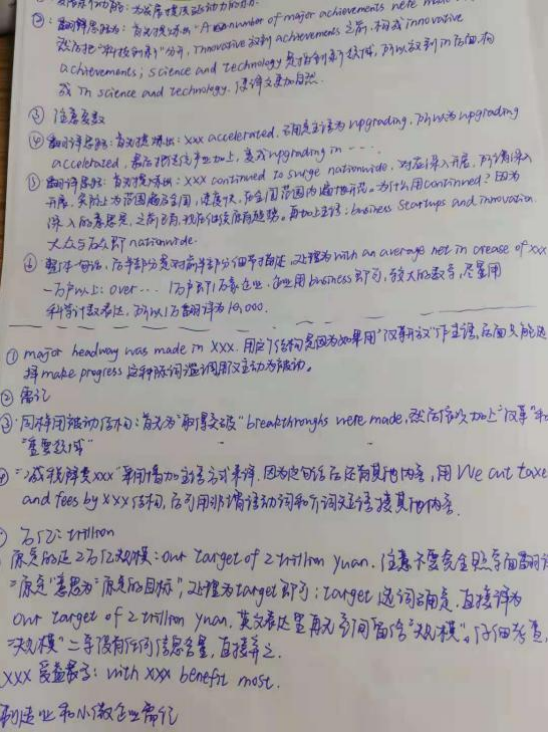 ②: 翻译思路为: 首先提炼出 "A number of major achievements were made
然后把"科技创新"分开, Innovative 放到 achievements 之前, 构成 innovative
achievements; science and technology 是指创新领域, 所以放到 in 后面, 构
成 in science and technology, 使译文更加自然.
③ 注意复数
④ 翻译思路: 首先提炼出: xxx accelerated, 主语为 upgrading, 所以为 upgrading
accelerated, 最后把产业加上, 变成 upgrading in ....
⑤ 翻译思路: 首先提炼出: xxx continued to surge nationwide, 对应深入开展, 所谓深入
开展, 实际上为范围遍及全国, 进度快, 在全国范围内. 为什么用 continued? 因为
深入的意思是, 之前已有, 现在继续. 再加上主语: business startups and innovation.
大众与万众即 nationwide.
⑥ 整体一句话, 后半部分是对前半部分细节描述, 处理为 with an average net increase of xxx
一万户以上: over ... 1万户即1万家企业, 企业用 business 即可, 较大的数字, 尽量用
科学计数表达, 所以1万翻译为 10,000.
① major headway was made in xxx. 用这个结构是因为如果用"改革开放"作主语, 后面只能选
择 make progress 这种陈词滥调, 用主动为被动.
② 需记
③ 同样用被动结构: 首先为"取得突破" breakthroughs were made, 然后依次加上"改革"和
"重要领域"
"减税降费xxx" 采用增加主语方式来译, 因为这句话后还有其他内容, 用 We cut taxes
and fees by xxx 结构, 后可用非谓语动词和介词短语接其他内容.
万亿: trillion
原定的近2万亿规模: our target of 2 trillion yuan. 注意不需要完全照字面翻译
"原定"意思为"原定的目标", 处理为 target 即可; target 选词确定, 直接译为
our target of 2 trillion yuan, 英文表达里再无空间留给"规模", 仔细考虑,
"规模"二字没有任何信息含量, 直接弃之.
xxx 受益最多: with xxx benefit most.
制造业和小微企业需记